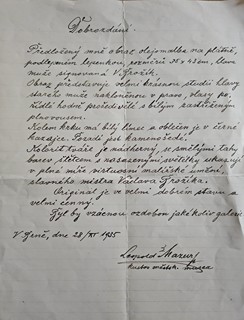 Dobrozdání.
Předložený mně obraz olejomalba na plátně,
podlepeném lepenkou, rozměrů 35 x 43 cm, hlava
muže signovaná V. Brožík.
Obraz představuje velmi krásnou studii hlavy
staršího muže nakloněnou v pravo, vlasy po-
řídlé hodně prošedivělé s bílým zastřiženým
plnovousem.
Kolem krku má bílý límec a oblečen je v černé
kazajce. Pozadí jest šedé.
Kolorit tváře je nádherný, se smělými tahy
barev, štětcem s nasazenými světélky ukazují
v plné míře virtuosní malířské umění,
slavného mistra Václava Brožíka.
Originál je ve velmi dobrém stavu a
velmi cenný.
Byl by vzácnou ozdobou jakékoliv galerie.
V Brně, dne 28/XI 1935
Leopold Mazur
kustos městsk.